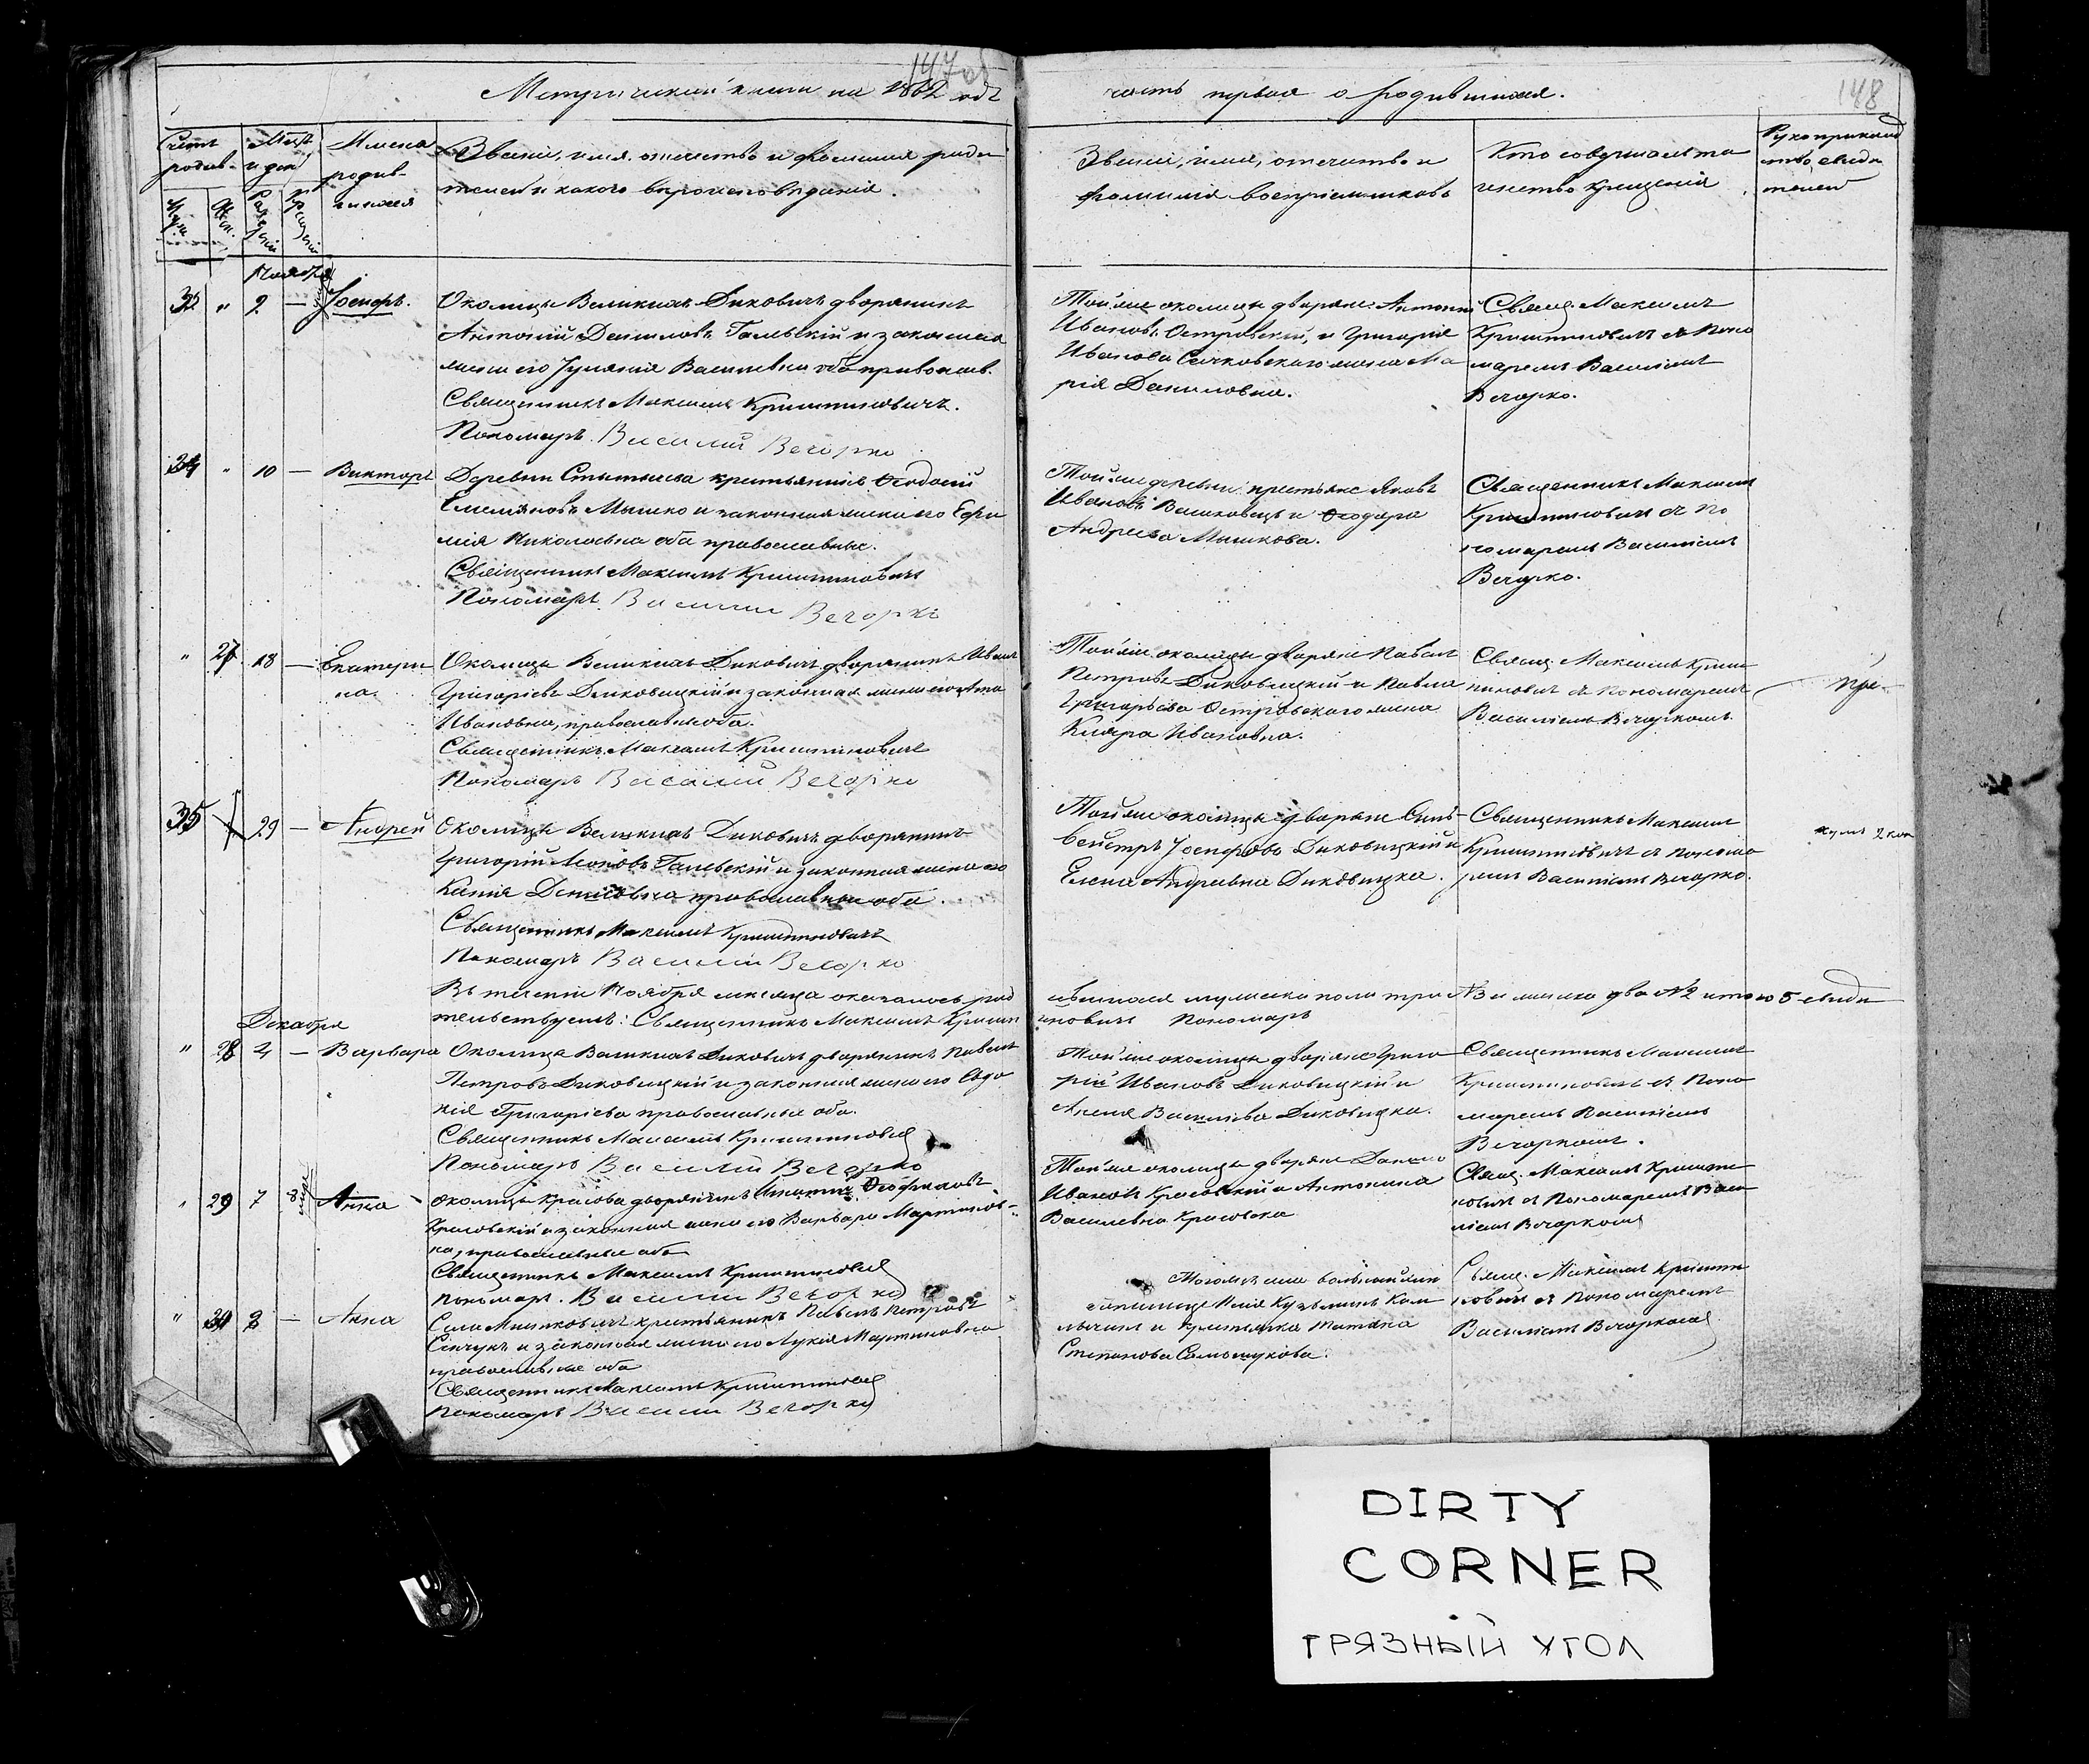 147 об
Метрической книги на 1862 годъ
часть первая о родившихся.
148
Счетъ родив-
Мѣсяц и дни
Имена родив-шихся
Званіе, имя, отчество и фамилія роди
телей и какого вѣроисповѣданія.
Званіе, имя, отчество и
фамилія воспріемниковъ
Кто совершалъ та
инство крещенія
Рукоприклад
ство свидѣ
телей
Муж.
Жен.
Рожденія
Крещенія
Ноября
33 " 2 — Іосифъ.
Околицы Великихъ Диковичъ дворянинъ
Антоній Даниловъ Галевскій и законная
жена его Іуліянія Васильевна оба правосла.
Священникъ Максимъ Криштиновичъ.
Пономарь Василий Вечорко
Той же околицы дворяне: Антоній
Ивановъ Островскій, и Григорія
Иванова Сачковскаго жена Ма
рія Даниловна.
Свящ. Максимъ
Криштиновичъ съ Поно
маремъ Василіемъ
Вечорко.
34 " 10 — Викторъ
Деревни Стытычева крестьянинъ Ѳеодосій
Емельяновъ Мышко и законная жена его Ефи
мія Николаевна оба православные.
Священникъ Максимъ Криштиновичъ
Пономарь Василии Вечорко
Той же деревни крестьяне Яковъ
Ивановъ Вашковецъ и Ѳеодора
Андреева Мышкова.
Священникъ Максимъ
Криштиновичъ съ По
номаремъ Василіемъ
Вечорко.
" 27 18 — Екатери
на.
Околицы Великихъ Диковичъ дворянинъ Иванъ
Григорьевъ Диковицкій и законная жена его Анна
Ивановна, православные оба.
Священникъ Максимъ Криштиновичъ
Пономарь Василий Вечорко
Той же околицы дворяне Павелъ
Петровъ Диковицкій и Павла
Григорьева Островскаго жена
Клара Ивановна.
Свящ. Максимъ Криш
тиновичъ съ Пономаремъ
Василіемъ Вечоркомъ.
35 29 — Андрей
Околицы Великихъ Диковичъ дворянинъ
Григорій Галевскій и законная жена его
Ксенія Даниловна православные оба.
Священникъ Максимъ Криштиновичъ
Пономарь Василии Вечорко
Той же околицы дворяне Силь-
вестръ Іосифовъ Диковицкій и
Елена Андреевна Диковицка.
Священникъ Максимъ
Криштиновичъ съ понома
ремъ Василіемъ Вечорко.
Въ теченіи Ноября мѣсяца оказалось род
ившихся мужеска пола три №3 и женска два №2 итого 5 свидѣ
тельствуемъ: Священникъ Максимъ Кришти
новичъ Пономарь
Декабря
" 28 4 — Варвара
Околицы Великихъ Диковичъ дворянинъ Павелъ
Петровъ Диковицкій и законная жена его Евдо
кія Григорьева православные оба.
Священникъ Максимъ Криштиновичъ
Пономарь Василий Вечорко
Той же околицы дворяне Григо
рій Ивановъ Диковицкій и
Васильева Диковицка.
Священникъ Максимъ
Криштиновичъ съ Поно
маремъ Василіемъ
Вечоркомъ.
" 29 7 8 Анна
Околицы Красова дворянинъ Ѳеофиловъ
Красовскій и законная жена его Варвара Мартинов-
на, православные оба
Священникъ Максимъ Криштиновичъ
пономарь. Василии Вечорко
Той же околицы дворяне Данило
Ивановъ Красовскій и Антонина
Васильевна Красовска
Свящ. Максимъ Кришти
новичъ съ Пономаремъ Васи
ліемъ Вечоркомъ
" 30 — Анна
Села Мистковичъ крестьянинъ Павелъ Петровъ
Сенчукъ и законная жена его Лукія Мартиновна
православные оба
Священникъ Максимъ Криштиновичъ
Пономарь Василии Вечорко
Илія Кузьминъ
и крестьянка Татіяна
Степанова Самощукова.
Свящ. Максимъ Кришти
новичъ съ Пономаремъ
Василіемъ Вечоркомъ
DIRTY
CORNER
ГРЯЗНЫЙ УГОЛ